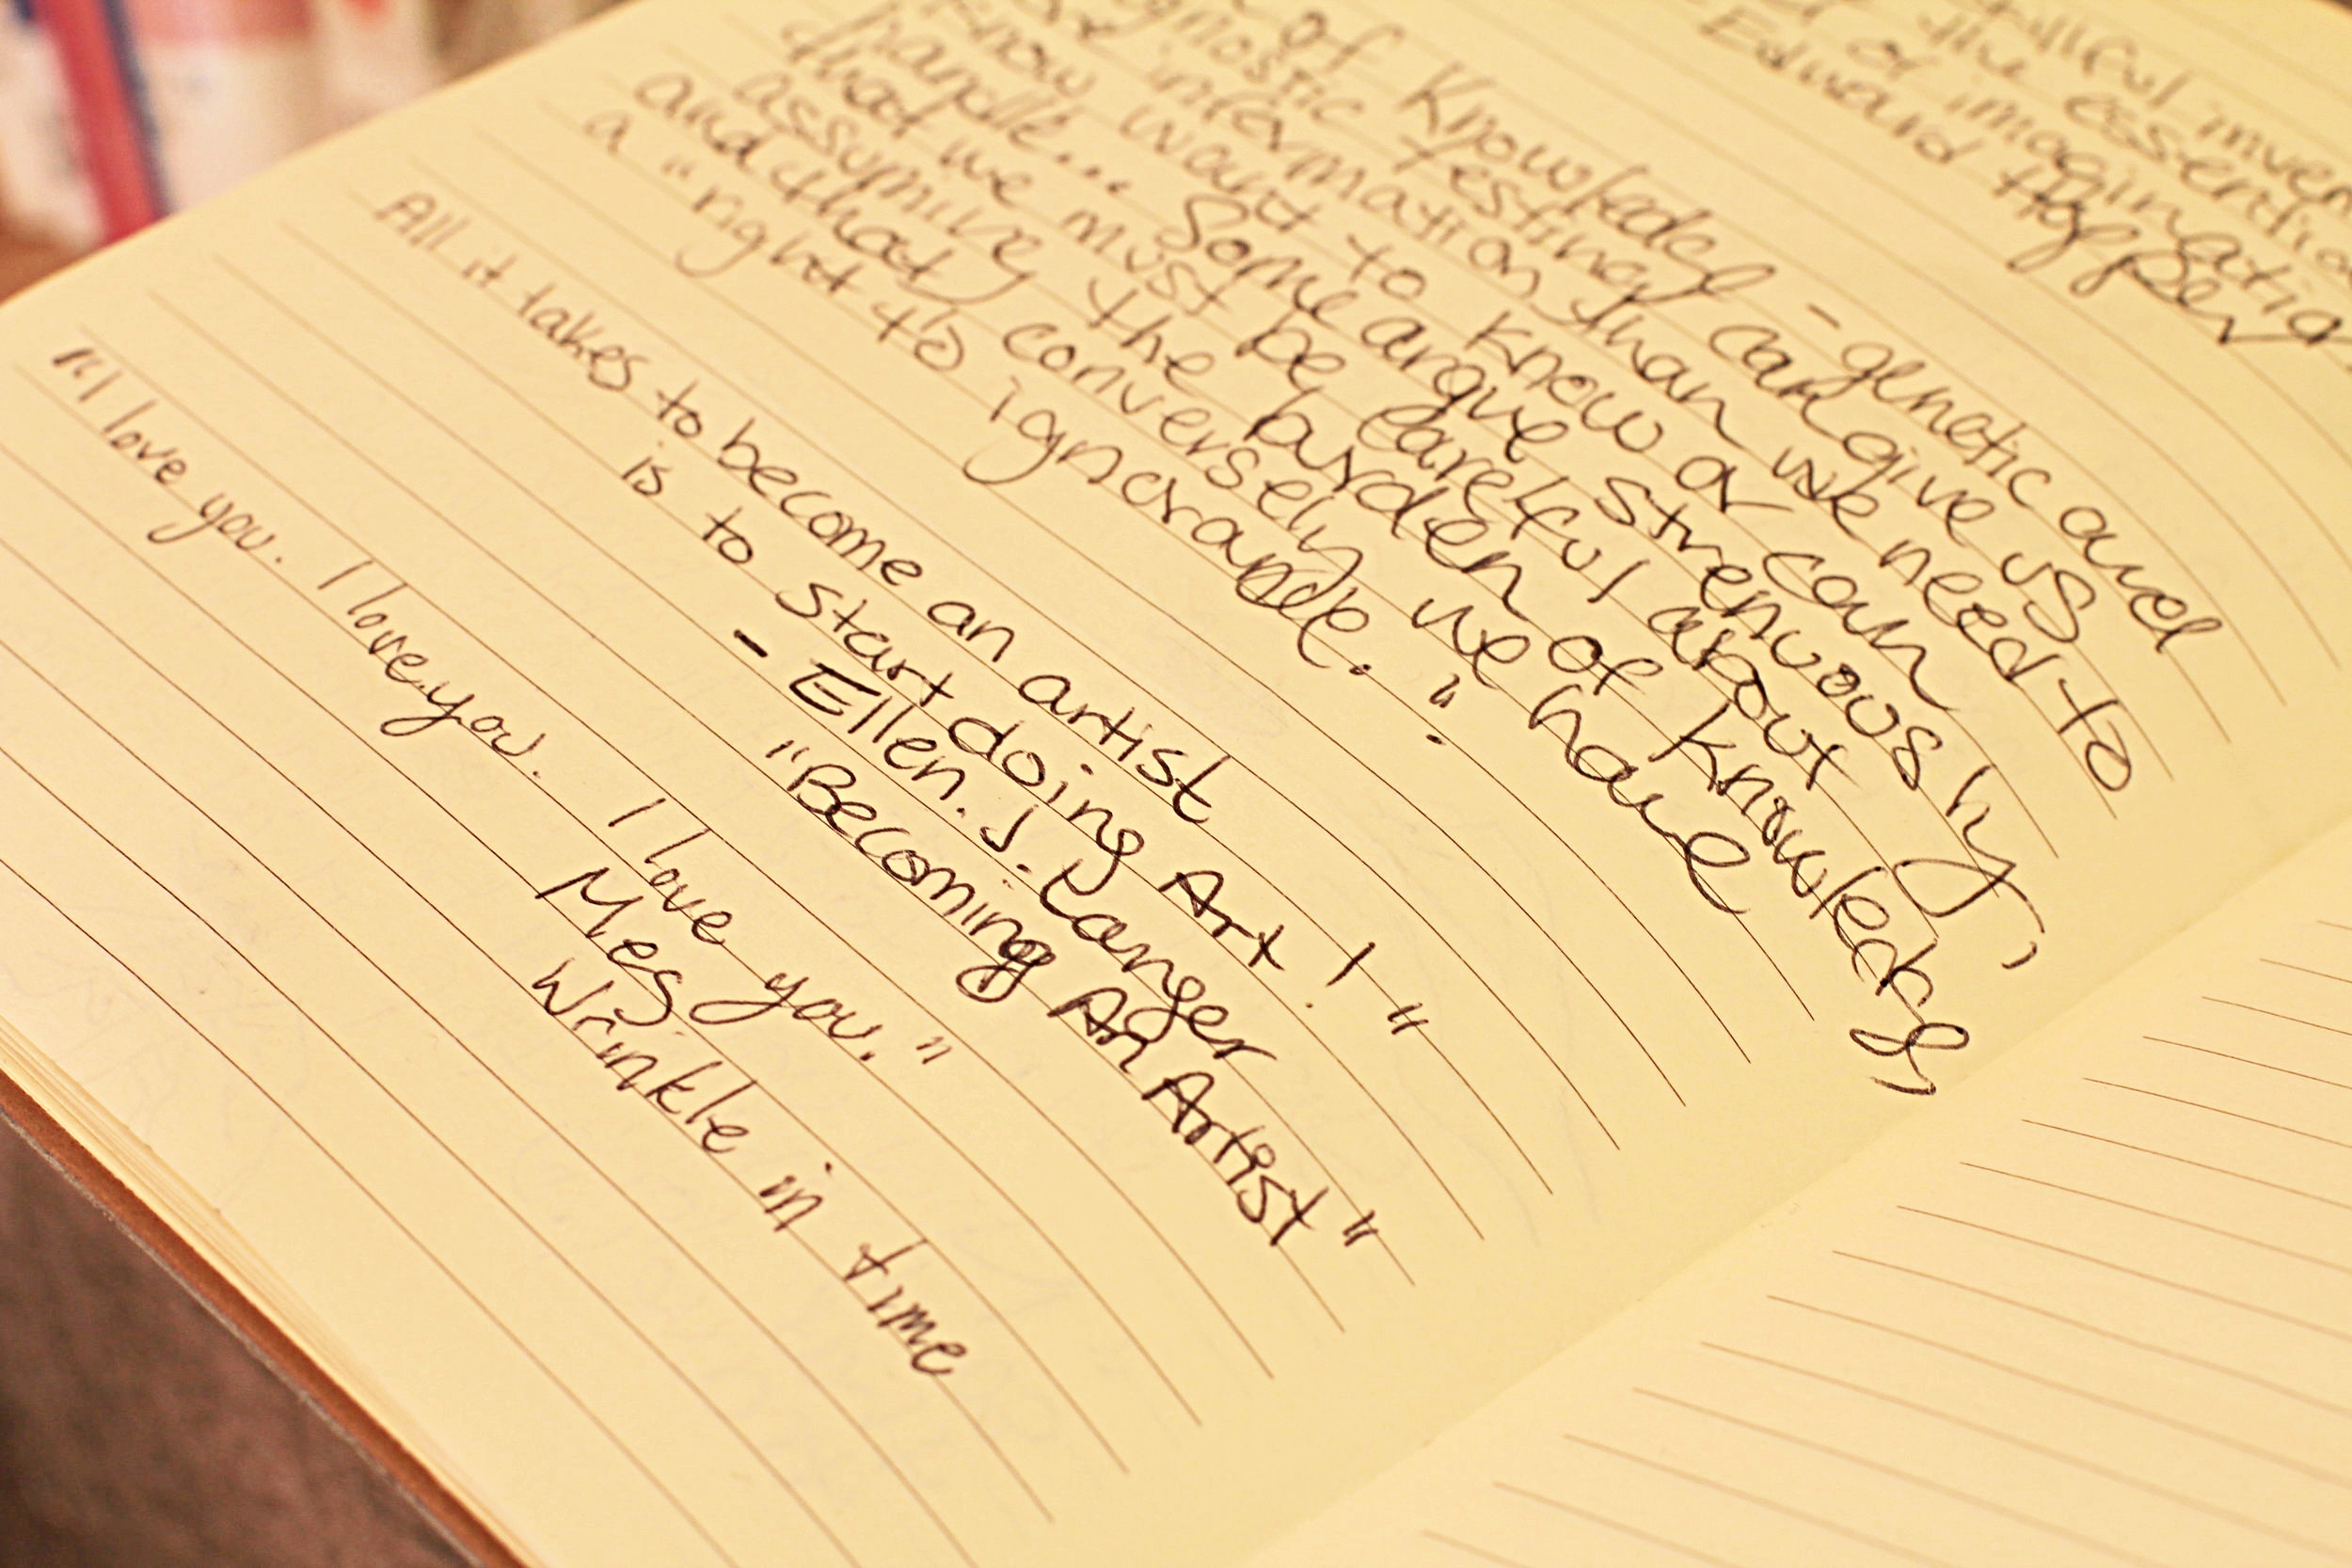 skillful inven
the essential
of imagination
Edward Hopper
of Knowledge - genetic and
testing can give us
information than we need to
know want to know or can
handle... Some argue strenuously,
that we must be careful about
assuming the burden of knowledge,
and that conversely we have
a "right to ignorance."
All it takes to become an artist
is to start doing Art!"
- Ellen. J. Langer
"Becoming An Artist"
"I love you. I love you. I love you."
Meg.
Wrinkle in time